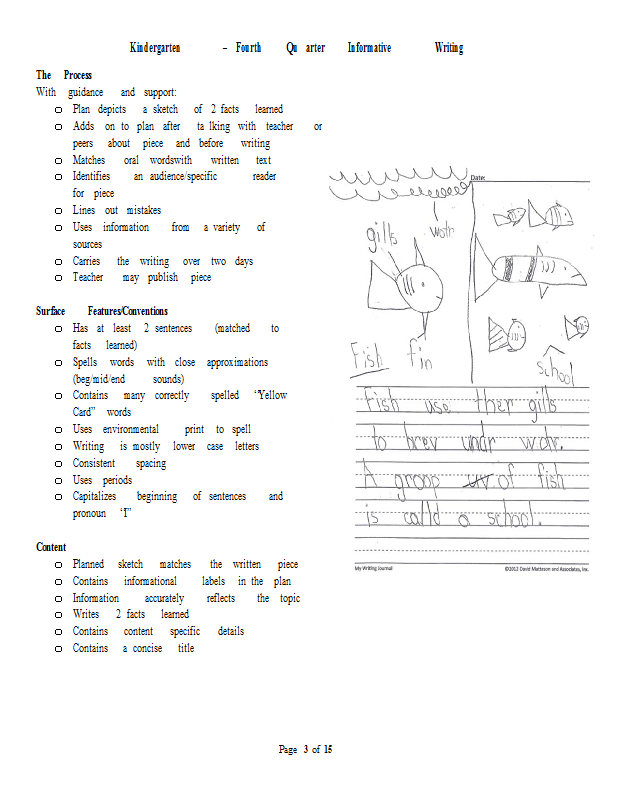 Kindergarten – Fourth Quarter Informative Writing
The Process
With guidance and support:
o Plan depicts a sketch of 2 facts learned
o Adds on to plan after talking with teacher or
peers about piece and before writing
o Matches oral wordswith written text
o Identifies an audience/specific reader
for piece
o Lines out mistakes
o Uses information from a variety of
sources
o Carries the writing over two days
o Teacher may publish piece
Surface Features/Conventions
o Has at least 2 sentences (matched to
facts learned)
o Spells words with close approximations
(beg/mid/end sounds)
o Contains many correctly spelled “Yellow
Card” words
o Uses environmental print to spell
o Writing is mostly lower case letters
o Consistent spacing
o Uses periods
o Capitalizes beginning of sentences and
pronoun “I”
Content
o Planned sketch matches the written piece
o Contains informational labels in the plan
o Information accurately reflects the topic
o Writes 2 facts learned
o Contains content specific details
o Contains a concise title
Date:
gills
wotr
Fish
fin
school
Fish use ther gills
to brev undr wotr.
A groop of fish
is calld a school.
My Writing Journal
©2012 David Matteson and Associates, Inc.
Page 3 of 15